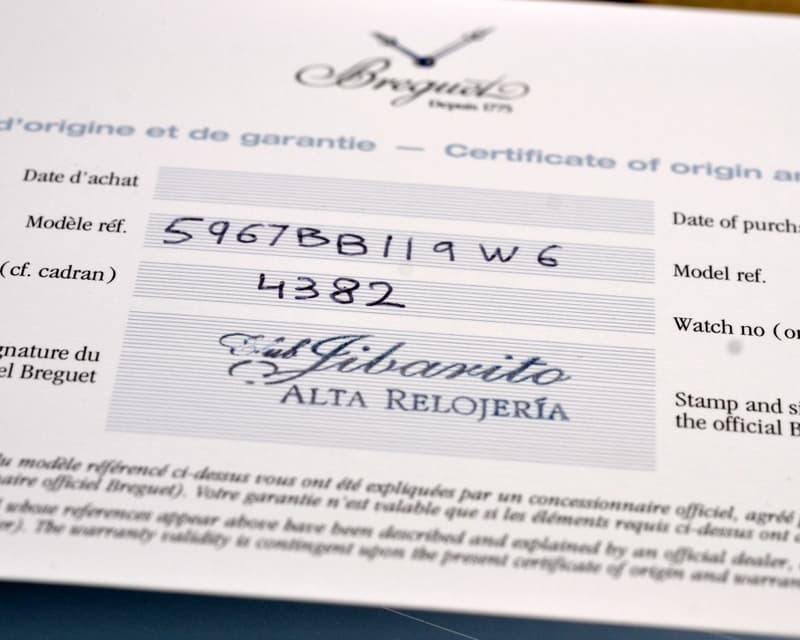 Breguet
Depuis 1775
d'origine et de garantie — Certificate of origin
Date d'achat
Date of
Modèle réf. 5967BB119W6
Model ref.
(cf. cadran) 4382
Watch no
du
Breguet
Jibarito
ALTA RELOJERÍA
Stamp and
the official
du modèle référencé ci-dessus vous ont été expliquées par un concessionnaire officiel, agréé
officiel Breguet). Votre garantie n'est valable que si les éléments requis ci-dessus ont
whose references appear above have been described and explained by an official dealer,
The warranty validity is contingent upon the present certificate of origin and